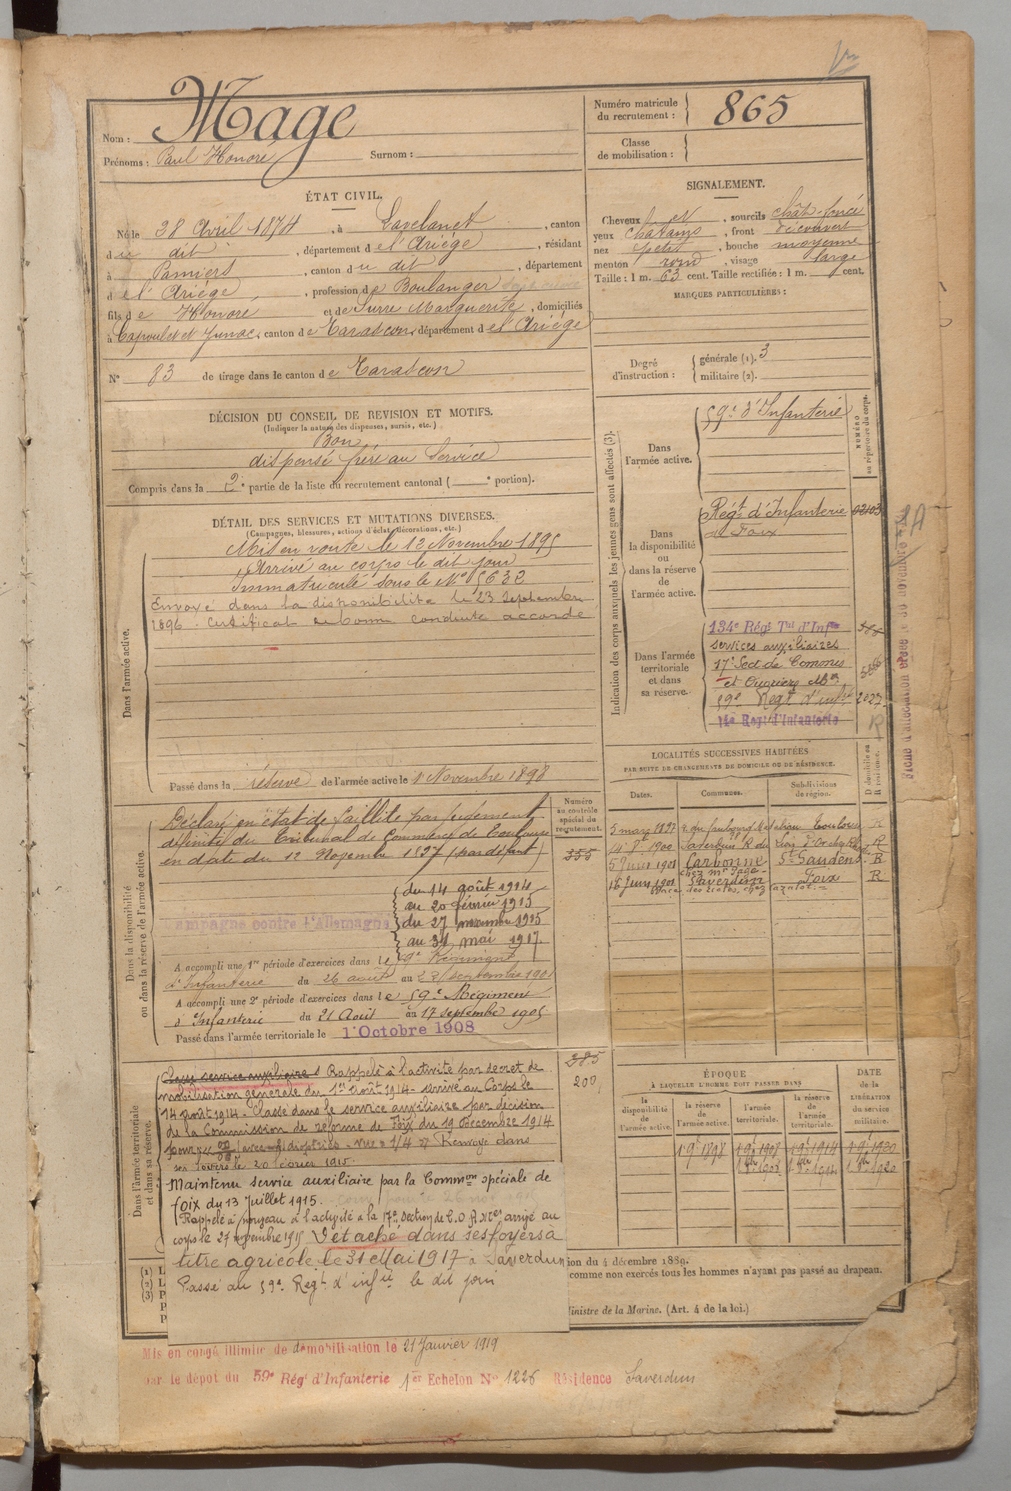 Nom : Mage
Prénoms : Paul Honoré Surnom :
Numéro matricule
du recrutement : 865
Classe
de mobilisation :
ÉTAT CIVIL.
Né le 28 Avril 1874, à Lavelanet, canton
du dit, département de l'Ariège, résidant
à Pamiers, canton du dit, département
de l'Ariège, profession de Boulanger
fils de Honoré et de Surre Marguerite, domiciliés
à Capoulet et Junac, canton de Tarascon, département de l'Ariège
N° 83 de tirage dans le canton de Tarascon
SIGNALEMENT.
Cheveux et, sourcils chât. foncé
yeux châtains, front découvert
nez petit, bouche moyenne
menton rond, visage large
Taille : 1 m. 63 cent. Taille rectifiée : 1 m. cent.
MARQUES PARTICULIÈRES :
Degré
d'instruction :
générale (1). 3
militaire (2).
DÉCISION DU CONSEIL DE REVISION ET MOTIFS.
(Indiquer la nature des dispenses, sursis, etc.)
Bon
dispensé frère au Service
Compris dans la 2e partie de la liste du recrutement cantonal ( e portion).
DÉTAIL DES SERVICES ET MUTATIONS DIVERSES.
(Campagnes, blessures, actions d'éclat, décorations, etc.)
Dans l'armée active.
Mis en route le 12 Novembre 1895
Arrivé au corps le dit jour
Immatriculé sous le N° 5632
Envoyé dans la disponibilité le 23 Septembre
1896. Certificat de bonne conduite accordé
Passé dans la réserve de l'armée active le 1 Novembre 1898
Indication des corps auxquels les jeunes gens sont affectés (3).
NUMÉRO
au répertoire du corps.
Dans
l'armée active.
59e d'Infanterie
Dans
la disponibilité
ou
dans la réserve
de
l'armée active.
Régt d'Infanterie 02103
de Foix
Dans l'armée
territoriale
et dans
sa réserve.
134e Régt Tal d'Infie
services auxiliaires
17e Sect de Commis
et Ouvriers Mres
59e Regt d'infie 2027
14e Regt d'Infanterie
R
LOCALITÉS SUCCESSIVES HABITÉES
PAR SUITE DE CHANGEMENTS DE DOMICILE OU DE RÉSIDENCE.
D domicile ou
R résidence.
Dates. Communes. Subdivisions
de région.
5 mars 1897 Toulouse R
1900 Saverdun R
5 Juin 1901 Carbonne St Gaudens R
chez Mr Page
18 Juin 1901 Saverdun Foix R
Numéro
au contrôle
spécial du
recrutement.
355
Dans la disponibilité
ou dans la réserve de l'armée active.
Déclaré en état de faillite par jugement
définitif du Tribunal de Commerce de Toulouse
en date du 12 Novembre 1897 (par défaut)
Campagne contre l'Allemagne
du 14 août 1914
au 20 février 1915
du 27 novembre 1915
au 31 mai 1917.
A accompli une 1re période d'exercices dans le 59e Régiment
d'Infanterie du 26 août au 22 septembre 1901
A accompli une 2e période d'exercices dans le 59e Régiment
d'Infanterie du 21 Août au 17 septembre 1905
Passé dans l'armée territoriale le 1 Octobre 1908
385
200
Dans l'armée territoriale
et dans sa réserve.
Classé service auxiliaire. Rappelé à l'activité par décret de
mobilisation générale du 1er Août 1914 - Arrivé au Corps le
14 août 1914 - Classé dans le service auxiliaire par décision
de la Commission de réforme de Foix du 19 Décembre 1914
Renvoyé dans
ses foyers le 20 février 1915.
Maintenu service auxiliaire par la Common spéciale de
Foix du 13 Juillet 1915.
Rappelé à nouveau à l'activité à la 17e Section de C.O.A. arrivé au
corps le 27 novembre 1915 Détaché dans ses foyers à
titre agricole le 31 Mai 1917 à Saverdun
Passé au 59e Regt d'infie le dit jour
ÉPOQUE
À LAQUELLE L'HOMME DOIT PASSER DANS
DATE
de la
LIBÉRATION
du service
militaire.
la
disponibilité
de
l'armée active.
la réserve
de
l'armée active.
l'armée
territoriale.
la réserve
de
l'armée
territoriale.
1 9bre 1898 1 9bre 1908 1 9bre 1914 1 9bre 1920
1 8bre 1908 1 8bre 1914 1 8bre 1920
(1) L
(2) L
(3)
ion du 4 décembre 1889.
comme non exercés tous les hommes n'ayant pas passé au drapeau.
Ministre de la Marine. (Art. 4 de la loi.)
Mis en congé illimité de démobilisation le 21 Janvier 1919
par le dépôt du 59e Régt d'Infanterie 1er Echelon N° 1226 Résidence Saverdun